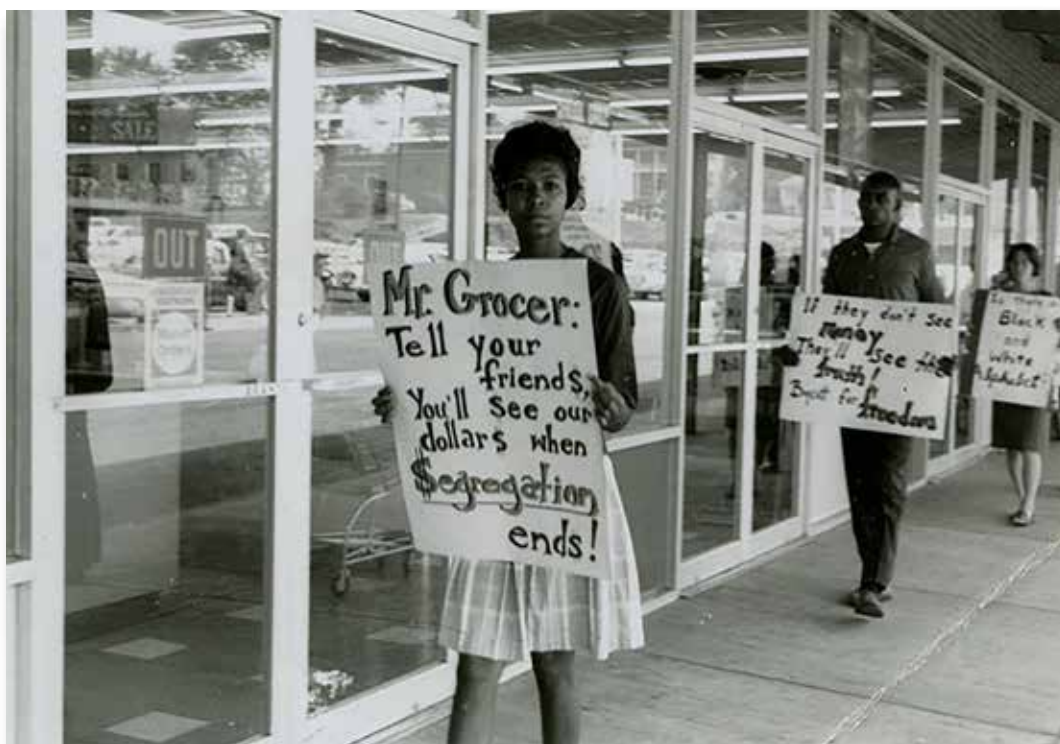 SALE
OUT
OUT
Mr. Grocer:
Tell your
friends,
You'll see our
dollars when
$egregation
ends!
If they don't see
money
They'll see the
truth!
Boycott for freedom
Is there a
Black
and
White
Alphabet